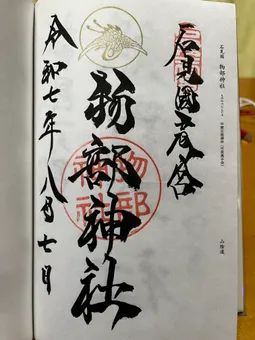 石見國
物部神社
山陰道
石見國
物部神社
物部
神社
令和七年八月七日